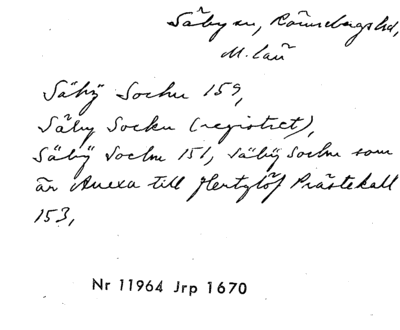 Säby sn, Rönnebergs hd,
M. län
Säbÿ Sochn 159,
Säby Sockn (registret),
Säbÿ Sochn 151, Säbÿ Sochn som
är Anexa till Hertzlöf Prästekall
153,
Nr 11964 Jrp 1670